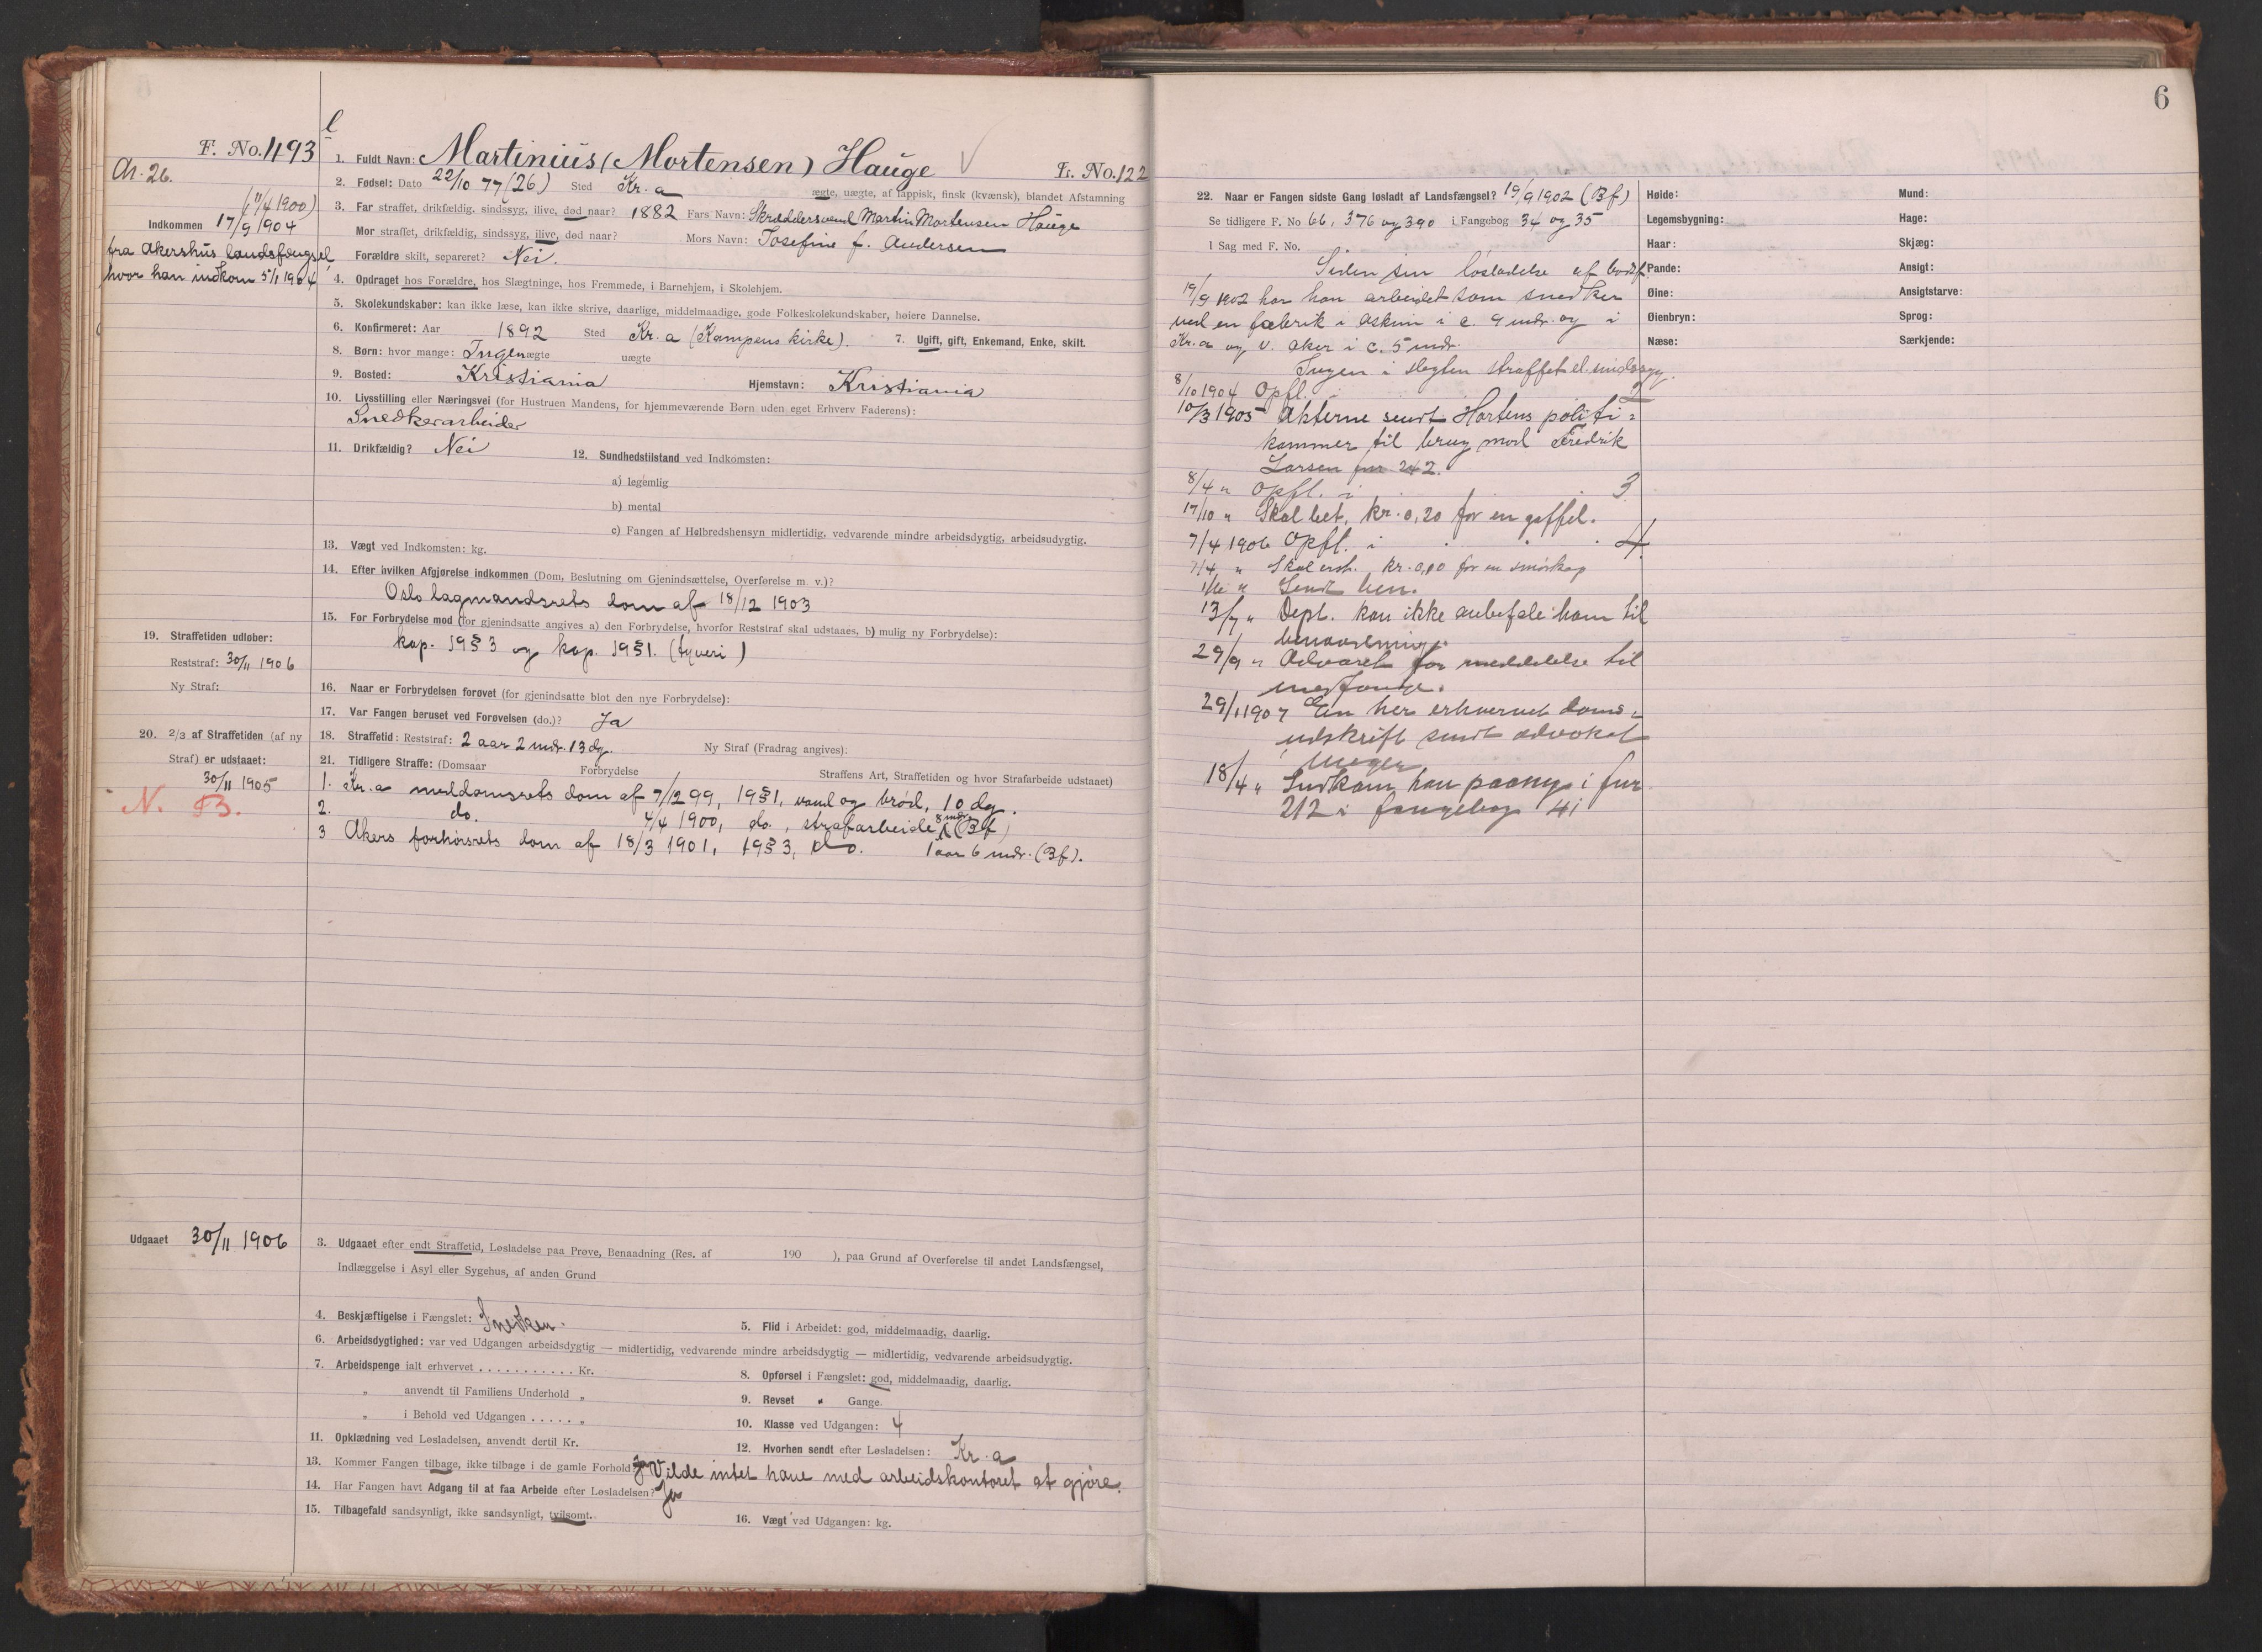 F. No. 493
Ar. 26.
(7/4 1900)
Indkommen 17/9 1904
fra Akershus landsfængsel,
hvor han indkom 5/1 1904
19. Straffetiden udløber:
Reststraf: 30/11 1906
Ny Straf:
20. 2/3 af Straffetiden (af ny
Straf) er udstaaet:
30/11 1905
N. B.
1. Fuldt Navn: Martinius (Mortensen) Hauge Fr. No. 122
2. Fødsel: Dato 22/10 77 (26) Sted Kr.a ægte, uægte, af lappisk, finsk (kvænsk), blandet Afstamning
3. Far straffet, drikfældig, sindssyg, ilive, død naar? 1882 Fars Navn: Skræddersvend Martin Mortensen Hauge
Mor straffet, drikfældig, sindssyg, ilive, død naar? Mors Navn: Josefine f. Andersen
Forældre skilt, separeret? Nei.
4. Opdraget hos Forældre, hos Slægtninge, hos Fremmede, i Barnehjem, i Skolehjem.
5. Skolekundskaber: kan ikke læse, kan ikke skrive, daarlige, middelmaadige, gode Folkeskolekundskaber, høiere Dannelse.
6. Konfirmeret: Aar 1892 Sted Kr.a (Kampens kirke). 7. Ugift, gift, Enkemand, Enke, skilt.
8. Børn: hvor mange: Ingen ægte uægte
9. Bosted: Kristiania Hjemstavn: Kristiania
10. Livsstilling eller Næringsvei (for Hustruen Mandens, for hjemmeværende Børn uden eget Erhverv Faderens):
Snedkerarbeider
11. Drikfældig? Nei 12. Sundhedstilstand ved Indkomsten:
a) legemlig
b) mental
c) Fangen af Helbredshensyn midlertidig, vedvarende mindre arbeidsdygtig, arbeidsudygtig.
13. Vægt ved Indkomsten: kg.
14. Efter hvilken Afgjørelse indkommen (Dom, Beslutning om Gjenindsættelse, Overførelse m. v.)?
Oslo lagmandsrets dom af 18/12 1903
15. For Forbrydelse mod (for gjenindsatte angives a) den Forbrydelse, hvorfor Reststraf skal udstaaes, b) mulig ny Forbrydelse):
kap. 19 § 3 og kap. 19 § 1. (tyveri)
16. Naar er Forbrydelsen forøvet (for gjenindsatte blot den nye Forbrydelse):
17. Var Fangen beruset ved Forøvelsen (do.)? Ja
18. Straffetid: Reststraf: 2 aar 2 mdr. 13 dg. Ny Straf (Fradrag angives):
21. Tidligere Straffe: (Domsaar Forbrydelse Straffens Art, Straffetiden og hvor Strafarbeide udstaaet)
1. Kr.a meddomsrets dom af 7/12 99, 19 § 1, vand og brød, 10 dg.
2. do. 4/4 1900, do., strafarbeide 8 mdr. (Bf)
3 Akers forhørsrets dom af 18/3 1901, 19 § 3, do. 1 aar 6 mdr. (Bf).
Udgaaet 30/11 1906
3. Udgaaet efter endt Straffetid, Løsladelse paa Prøve, Benaadning (Res. af 190 ), paa Grund af Overførelse til andet Landsfængsel,
Indlæggelse i Asyl eller Sygehus, af anden Grund
4. Beskjæftigelse i Fængslet: Snedker. 5. Flid i Arbeidet: god, middelmaadig, daarlig.
6. Arbeidsdygtighed: var ved Udgangen arbeidsdygtig — midlertidig, vedvarende mindre arbeidsdygtig — midlertidig, vedvarende arbeidsudygtig.
7. Arbeidspenge ialt erhvervet . . . . . . . . . . . Kr.
8. Opførsel i Fængslet: god, middelmaadig, daarlig.
„ anvendt til Familiens Underhold „
9. Revset " Gange.
„ i Behold ved Udgangen . . . . . „
10. Klasse ved Udgangen: 4
11. Opklædning ved Løsladelsen, anvendt dertil Kr.
12. Hvorhen sendt efter Løsladelsen: Kr.a
13. Kommer Fangen tilbage, ikke tilbage i de gamle Forhold? Ja Vilde intet have med arbeidskontoret at gjøre.
14. Har Fangen havt Adgang til at faa Arbeide efter Løsladelsen? Ja
15. Tilbagefald sandsynligt, ikke sandsynligt, tvilsomt.
16. Vægt ved Udgangen: kg.
6
22. Naar er Fangen sidste Gang løsladt af Landsfængsel? 19/9 1902 (Bf)
Se tidligere F. No 66, 376 og 390 i Fangebog 34 og 35
I Sag med F. No.
Siden sin løsladelse af bodsf.
19/9 1902 har han arbeidet som snedker
ved en fabrik i Askim i c. 9 mdr. og i
Kr.a og V. Aker i c. 5 mdr.
Ingen i slegten straffet el. sindssyg.
8/10 1904 Opfl. 2
10/3 1905 Akterne sendt Hortens politi=
kammer til brug mod Fredrik
Larsen fnr. 242.
8/4 " Opfl. i . . . 3
17/10 " Skal bet. kr. 0,20 for en gaffel.
7/4 1906 Opfl. i . . . 4
7/4 " Skal erst. kr. 0,10 for en smørkop
1/6 " Sendt ben.
13/7 " Dept. kan ikke anbefale ham til
benaadning.
29/9 " Advaret for meddelelse til
medfange.
29/1 1907 En her erhvervet doms=
udskrift sendt advokat
Meyer
18/4 " Indkom han paany i fnr.
212 i fangebog 41
Høide: Mund:
Legemsbygning: Hage:
Haar: Skjæg:
Pande: Ansigt:
Øine: Ansigtstarve:
Øienbryn: Sprog:
Næse: Særkjende: